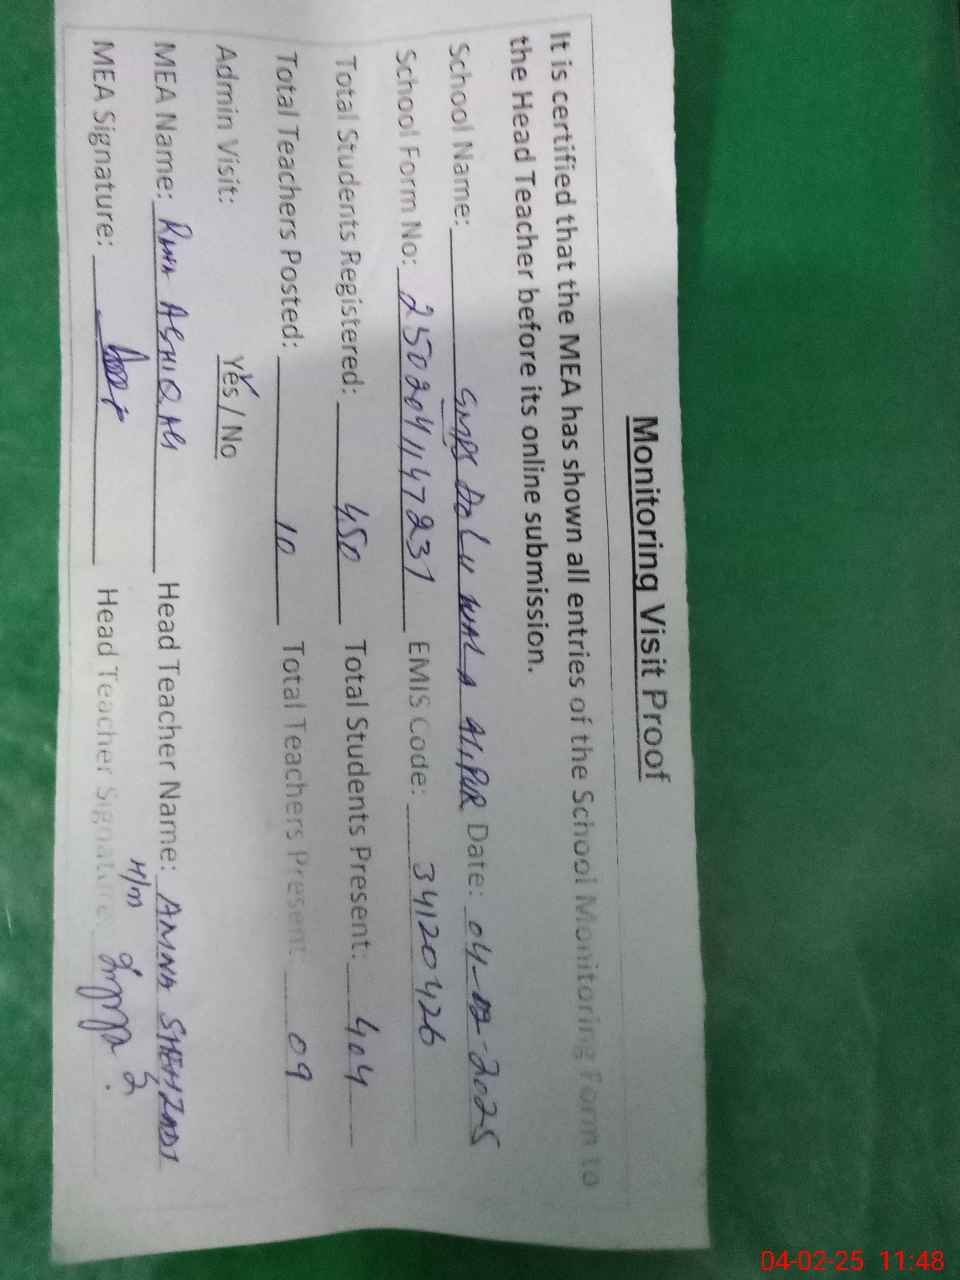 Monitoring Visit Proof
It is certified that the MEA has shown all entries of the School Monitoring Form to
the Head Teacher before its online submission.
School Name: GMPS DOLU WALA ALIPUR Date: 04-02-2025
School Form No: 2502041147231 EMIS Code: 34120426
Total Students Registered: 450 Total Students Present: 404
Total Teachers Posted: 10 Total Teachers Present: 09
Admin Visit: Yes / No
MEA Name: RANA ASHIQ Ali Head Teacher Name: AMNA SHEHZADI
MEA Signature: Head Teacher Signature: H/M
04-02-25 11:48